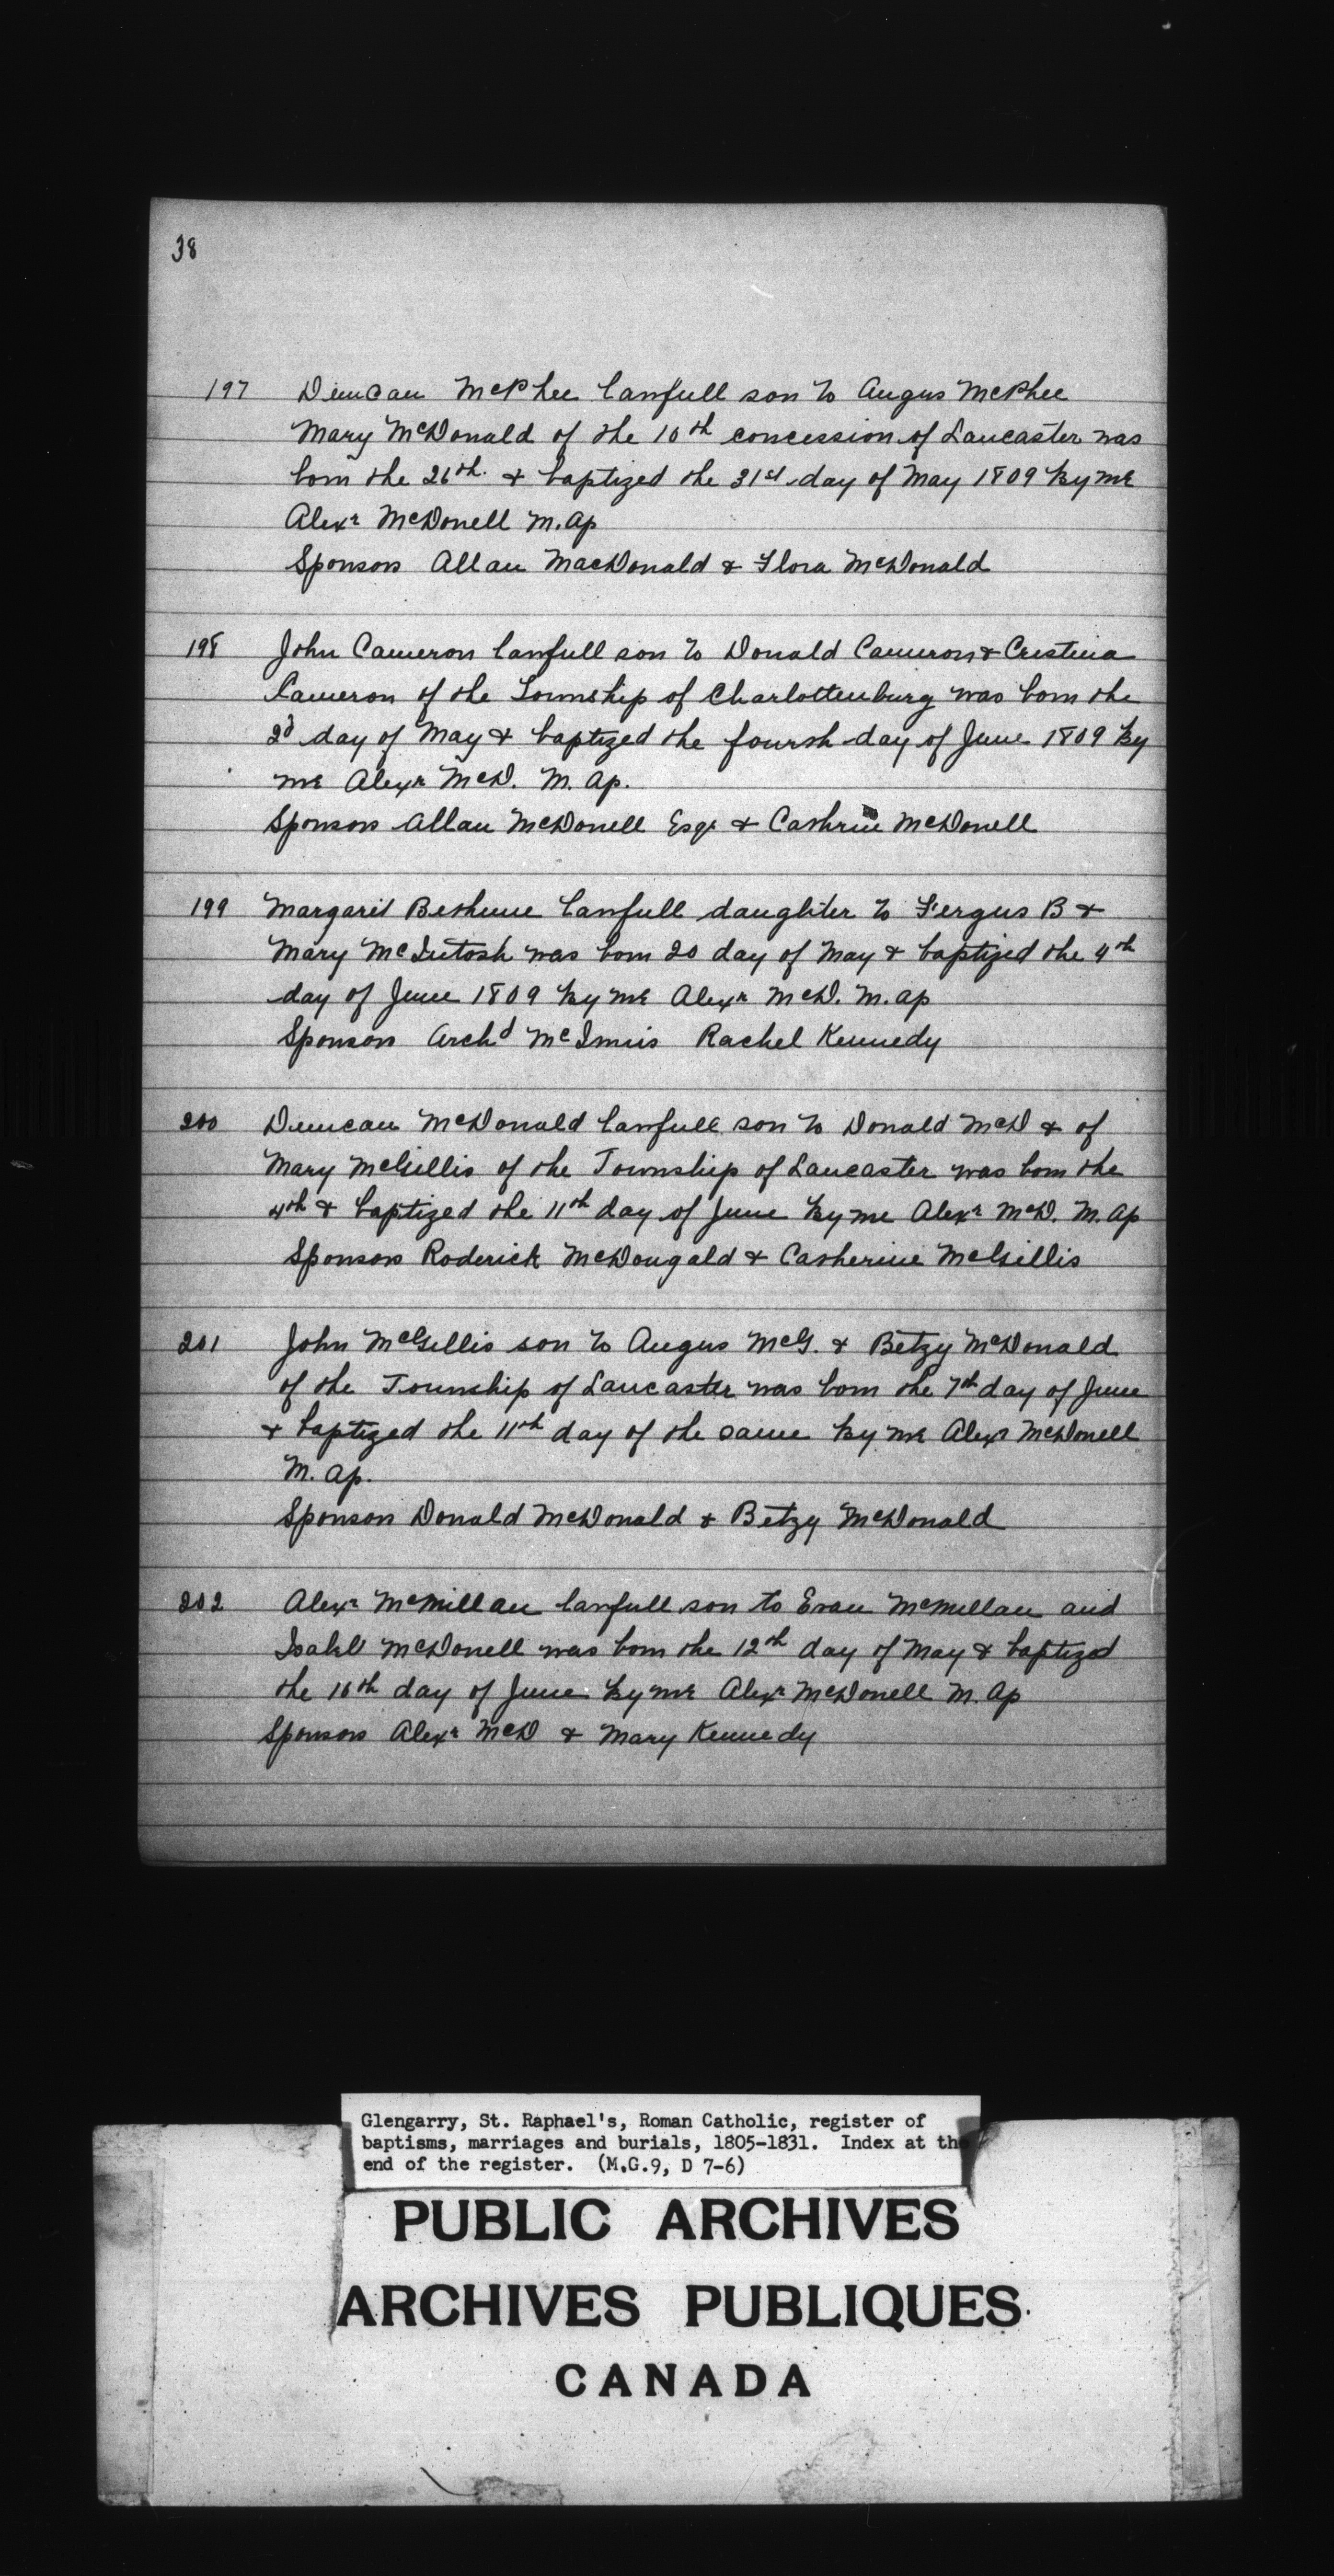 38
197 Duncan McPhee lawfull son to Angus McPhee
Mary McDonald of the 10th concession of Lancaster was
born the 26th. & baptized the 31st day of May 1809 by me
Alexr McDonell M. Ap
Sponsors Allan MacDonald & Flora McDonald
198 John Cameron lawfull son to Donald Cameron & Cristina
Cameron of the Township of Charlottenburg was born the
2d day of May & baptized the fourth day of June 1809 by
me Alexr McD. M. Ap.
Sponsors Allan McDonell Esqr & Cathrine McDonell
199 Margaret Bethune lawfull daughter to Fergus B &
Mary McIntosh was born 20 day of May & baptized the 4th
day of June 1809 by me Alexr McD. M. Ap
Sponsors Archd McInnis Rachel Kennedy
200 Duncan McDonald lawfull son to Donald McD & of
Mary McGillis of the Township of Lancaster was born the
4th & baptized the 11th day of June by me Alexr McD. M. Ap
Sponsors Roderick McDougald & Catherine McGillis
201 John McGillis son to Angus McG. & Betzy McDonald
of the Township of Lancaster was born the 7th day of June
& baptized the 11th day of the same by me Alexr McDonell
M. Ap.
Sponsors Donald McDonald & Betzy McDonald
202 Alexr McMillan lawfull son to Evan McMillan and
Isabll McDonell was born the 12th day of May & baptized
the 16th day of June by me Alexr McDonell M. Ap
Sponsors Alexr McD & Mary Kennedy
Glengarry, St. Raphael's, Roman Catholic, register of
baptisms, marriages and burials, 1805-1831. Index at the
end of the register. (M.G.9, D 7-6)
PUBLIC ARCHIVES
ARCHIVES PUBLIQUES
CANADA